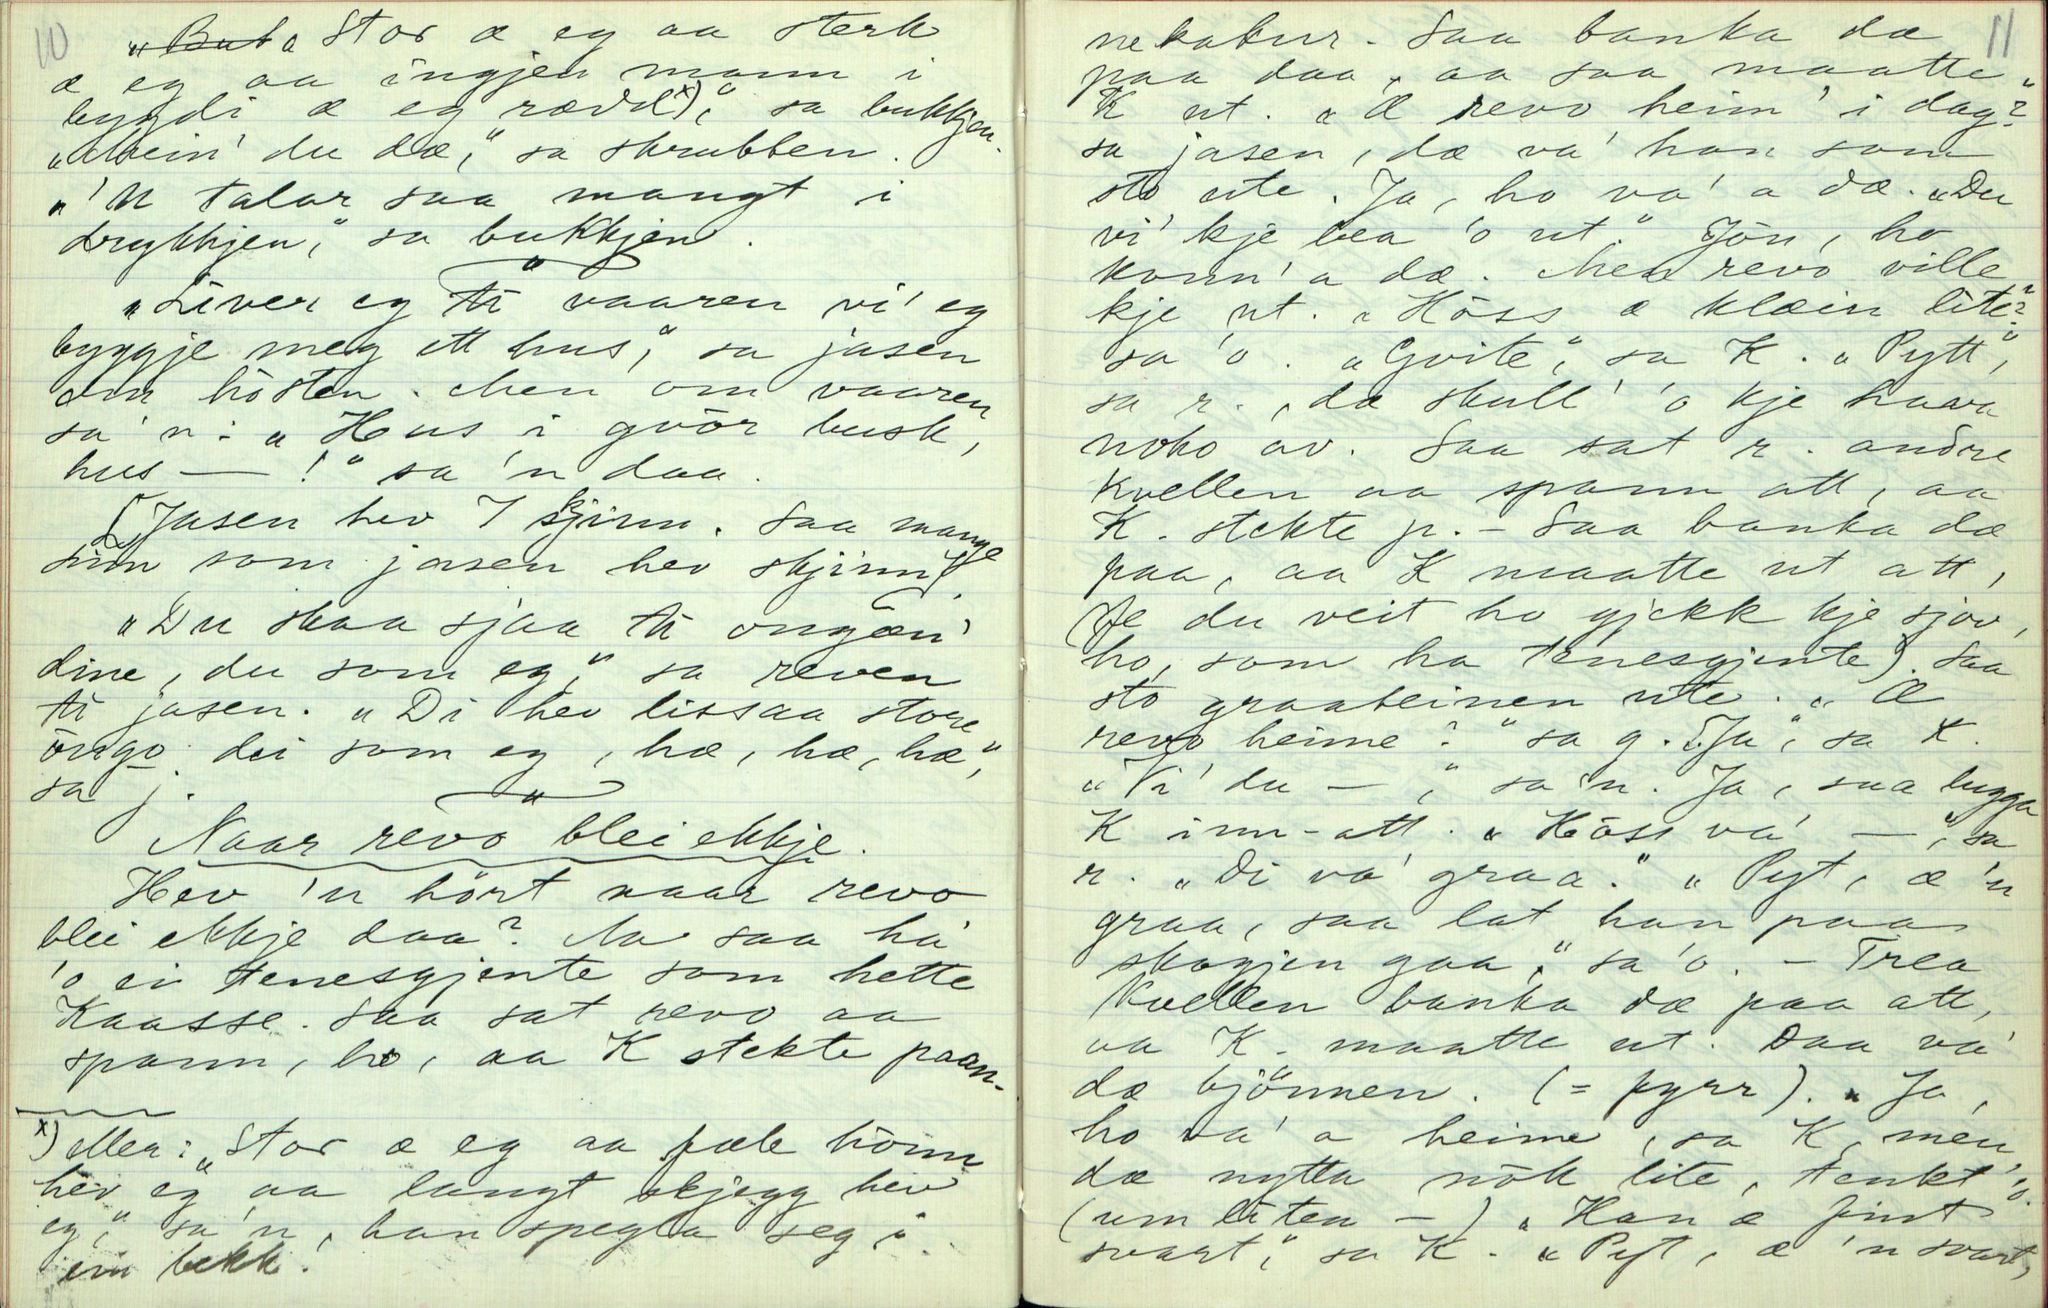 10
"Buk Stor æ eg aa sterk
æ eg aa ingjen mann i
bygdi æ eg rædd x)," sa bukkjen.
"Mein' du dæ," sa skrubben.
"'N talar saa mangt i
drykkjen," sa bukkjen.
"Liver eg ti vaaren vi' eg
byggje meg ett hus," sa jasen
om hösten. Men om vaaren
sa 'n: "Hus i gvör busk,
hus — !" sa 'n daa.
[Jasen hev 7 skjinn. Saa mange
sinn som jasen hev skjinn].
"Du skaa sjaa ti ongæn'
dine, du som eg," sa reven
ti jasen. "Di hev lissaa store
öugo dei som eg, hæ, hæ, hæ,"
sa j.
Naar revo blei ekkje.
Hev 'n hört naar revo
blei ekkje daa? Na saa ha'
'o ei tenesgjente som hette
Kaasse. Saa sat revo aa
spann, ho, aa K stekte paan-
x) eller: "Stor æ eg aa fæle hönn
hev eg aa langt skjegg hev
eg," sa 'n, han spegla seg i
ein bekk.
11
nekakur. Saa banka dæ
paa daa, aa saa maatte
K ut. "Æ revo heim' i dag?"
sa jasen, dæ va' han som
sto ute. Ja, ho va' a dæ. "Du
vi' kje bea 'o ut." Jön, ho
konn' a dæ. Men revo ville
kje ut. "Höss æ klæin lite?"
sa 'o. "Gvite," sa K. "Pytt",
sa r., dæ skull' 'o kje haava
noko av. Saa sat r. andre
kvellen aa spann att, aa
K. stekte p. - Saa banka dæ
paa, aa K maatte ut att,
(Je du veit ho gjekk kje sjov,
ho, som ha tenesgjente). Saa
sto graabeinen ute. "Æ
revo heime?" sa g. "Ja", sa K.
"Vi' du — ," sa'n. Ja, saa bygga
K inn-att. "Höss va' — ", sa
r. "Di va' graa." "Pyt, æ 'n
graa, saa lat han paa
skogjen gaa," sa 'o. - Trea
kvellen banka dæ paa att,
aa K. maatte ut. Daa va'
dæ bjönnen. (= fyrr). "Ja,
ho va' a heime, sa K, men
dæ nytta nök lite, tenkt' 'o.
(um liten —) "Han æ fint
svart," sa K. "Pyt, æ 'n svart,